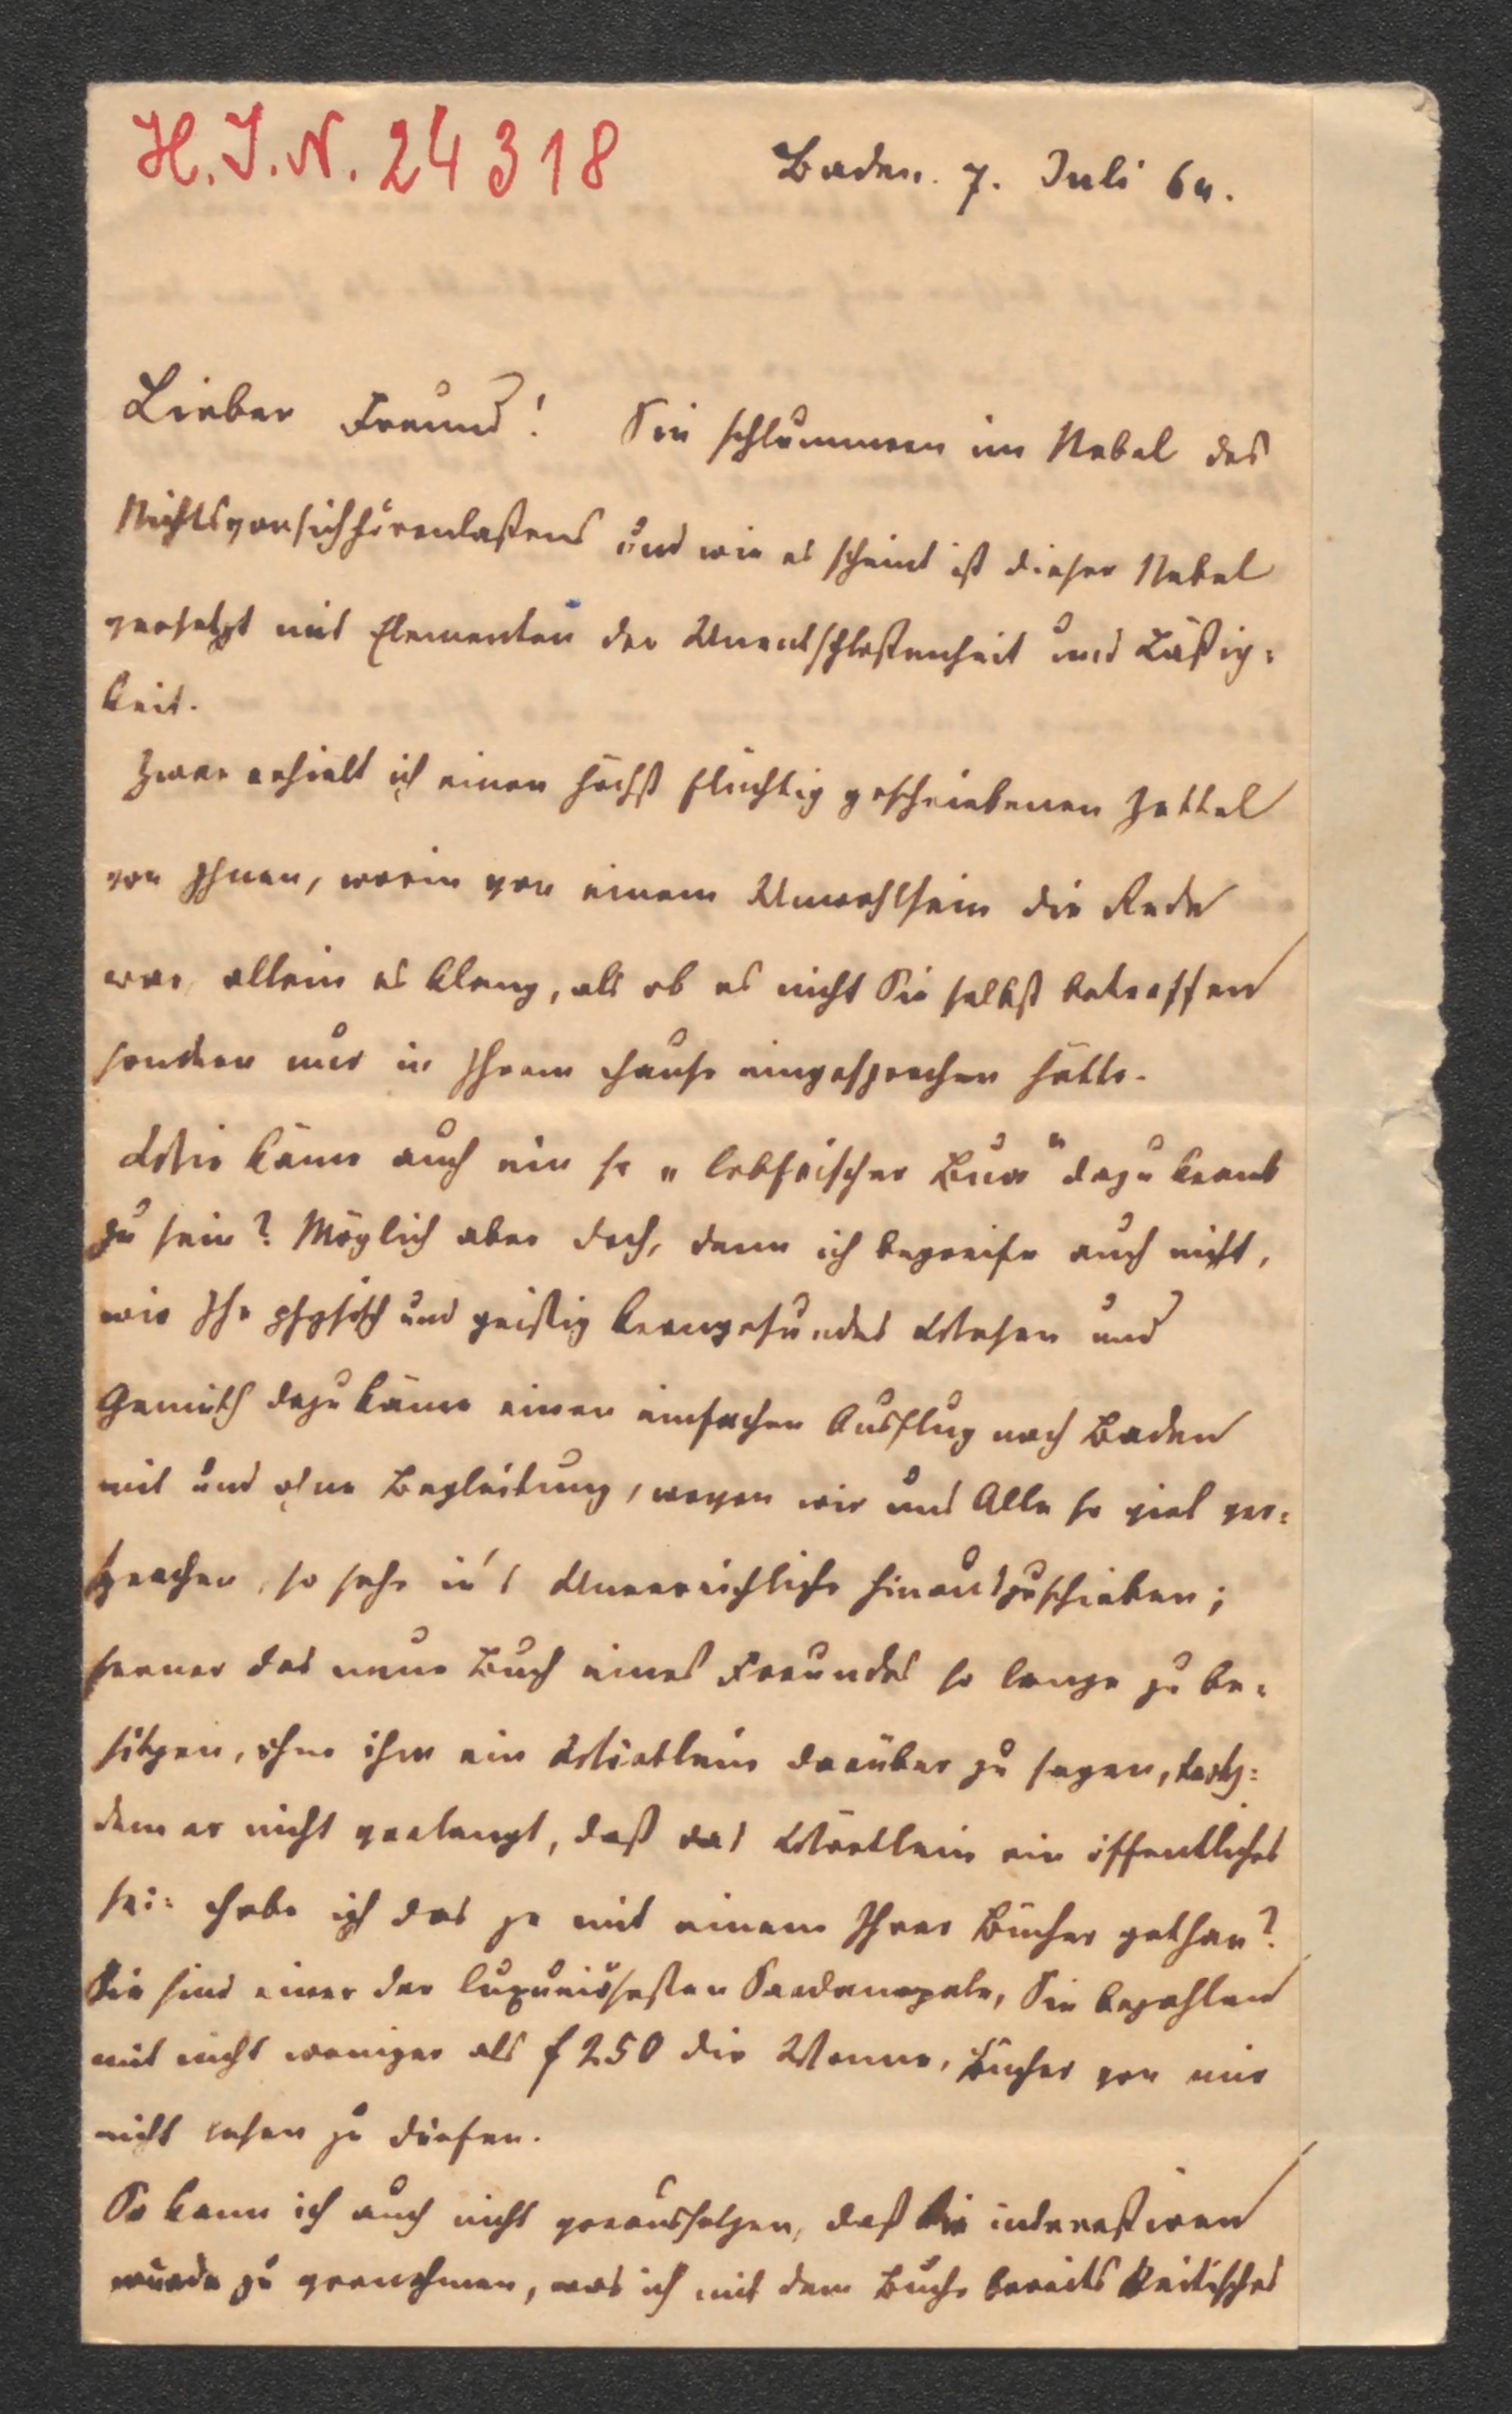 H. I. N. 24318
Baden. 7. Juli 64.
Lieber Freund! Sie schlummern im Nebel des
Nichtsvonsichhörenlaßens und wie es scheint ist dieser Nebel
versetzt mit Elementen der Unentschloßenheit und Läßig-
keit.
Zwar erhielt ich einen höchst flüchtig geschriebenen Zettel
von Ihnen, worin von einem Unwohlsein die Rede
war, allein es klang, als ob es nicht Sie selbst betroffen
sondern nur in Ihrem Hause eingesprochen hätte.
Wie käme auch ein so „lebfrischer Bua" dazu krank
zu sein? Möglich aber doch, denn ich begreife auch nicht,
wie Ihr physisch und geistig kerngesundes Wesen und
Gemüth dazu käme einen einfachen Ausflug nach Baden
mit und ohne Begleitung, wovon wir uns Alle so viel ver-
sprachen, so sehr in's Unerreichliche hinauszuschieben;
ferner das neue Buch eines Freundes so lange zu be-
sitzen, ohne ihm ein Wörtlein darüber zu sagen, trotz-
dem er nicht verlangt, daß das Wörtlein ein öffentliches
sei: habe ich das je mit einem Ihrer Bücher gethan?
Sie sind einer der luxuriösesten Sardanapale, Sie bezahlen
mit nicht weniger als f 250 die Wonne, Bücher von mir
nicht lesen zu dürfen.
So kann ich auch nicht voraussetzen, daß Sie interessiren
würde zu vernehmen, was ich mit dem Buche bereits Kritisches